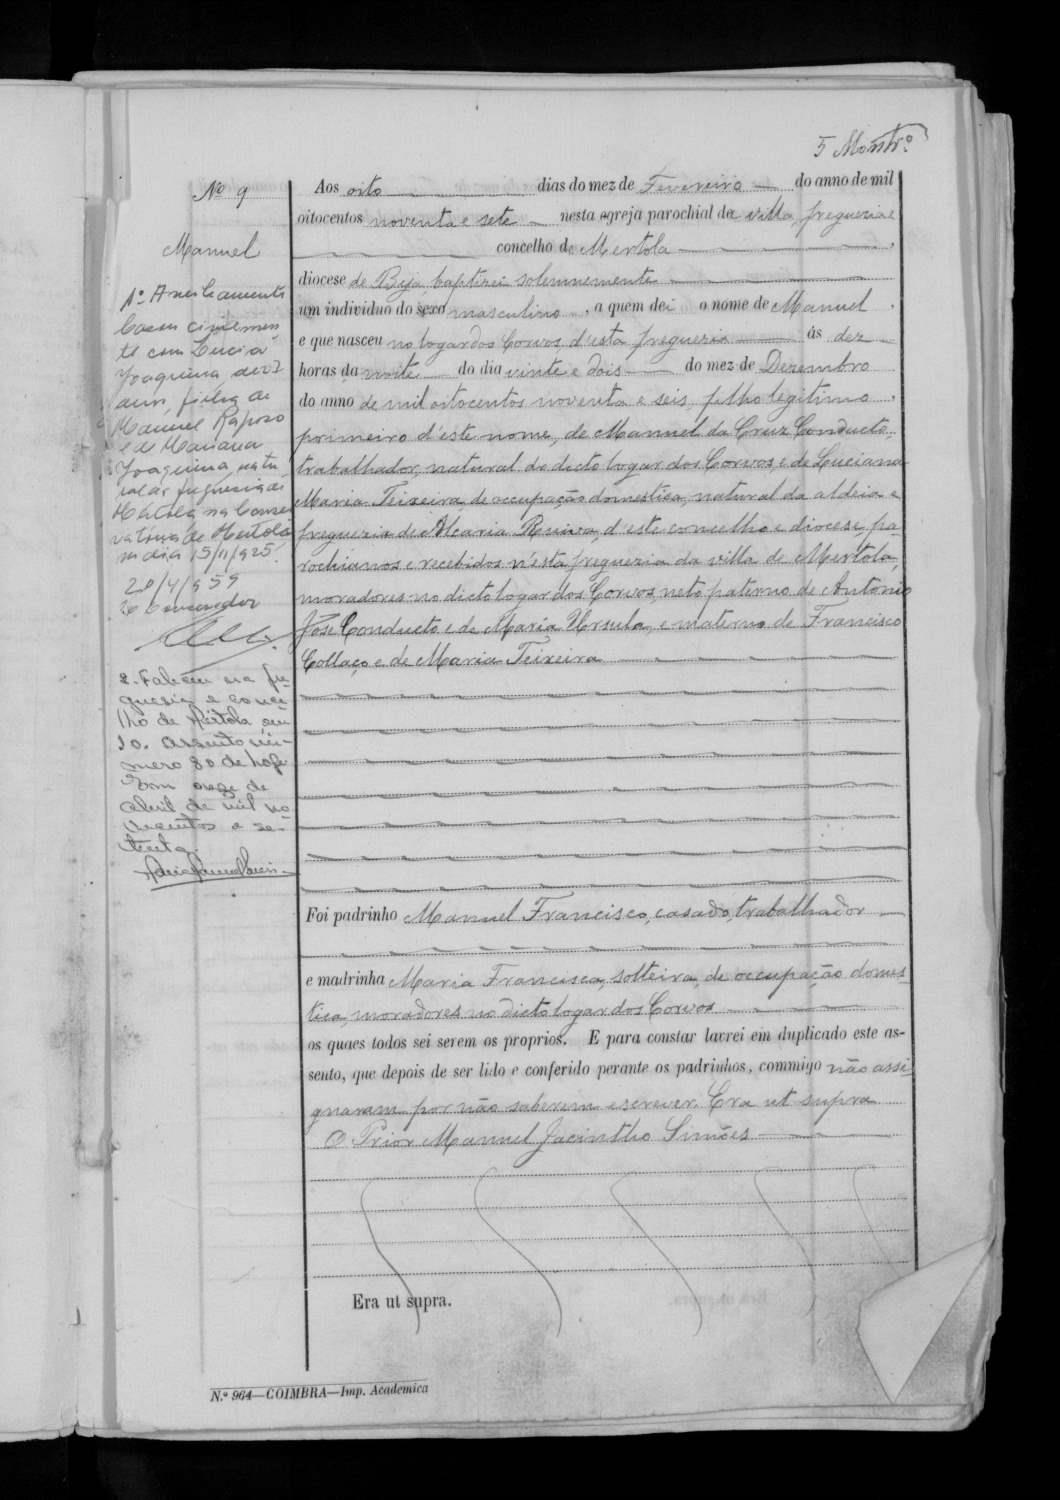 5 Montrº
Nº 9
Manuel
Aos oito dias do mez de Fevereiro do anno de mil
oitocentos noventa e sete nesta egreja parochial da villa, freguezia e
concelho de Mertola
diocese de Beja, baptizei solemnemente
um individuo do sexo masculino, a quem dei o nome de Manuel
e que nasceu no logar dos Corvos, d'esta freguezia ás dez
horas da noite do dia vinte e dois do mez de Dezembro
do anno de mil oitocentos noventa e seis, filho legitimo,
primeiro d'este nome, de Manuel da Cruz Conducto,
trabalhador, natural do dicto logar dos Corvos, e de Luciana
Maria Teixeira, de occupação domestica, natural da aldeia e
freguezia de Alcaria Ruiva, d'este concelho e diocese, pa-
rochianos e recebidos n'esta freguezia da villa de Mertola,
moradores no dicto logar dos Corvos, neto paterno de Antonio
José Conducto e de Maria Ursula, e materno de Francisco
Collaço e de Maria Teixeira
Foi padrinho Manuel Francisco, casado, trabalhador
e madrinha Maria Francisca, solteira, de occupação domes-
tica, moradores no dicto logar dos Corvos
os quaes todos sei serem os proprios. E para constar lavrei em duplicado este as-
sento, que depois de ser lido e conferido perante os padrinhos, commigo não assi-
gnaram por não saberem escrever. Era ut supra
O Prior Manuel Jacintho Simões
Era ut supra.
N.º 964—COIMBRA—Imp. Academica
1º Averbamento
Casou civilmen
te com Lucia
Joaquina, de
anos, filha de
Manuel Raposo
e de Mariana
Joaquina, natu
ral da freguesia de
Mertola na Conser
vatoria de Mertola
no dia 15/11/925.
20/4/959
O Conservador
2. Faleceu na fre-
guesia e conce-
lho de Mértola, em
10. Assento nú-
mero 80 de hoje
Em onze de
abril de mil no-
vecentos e se-
tenta.